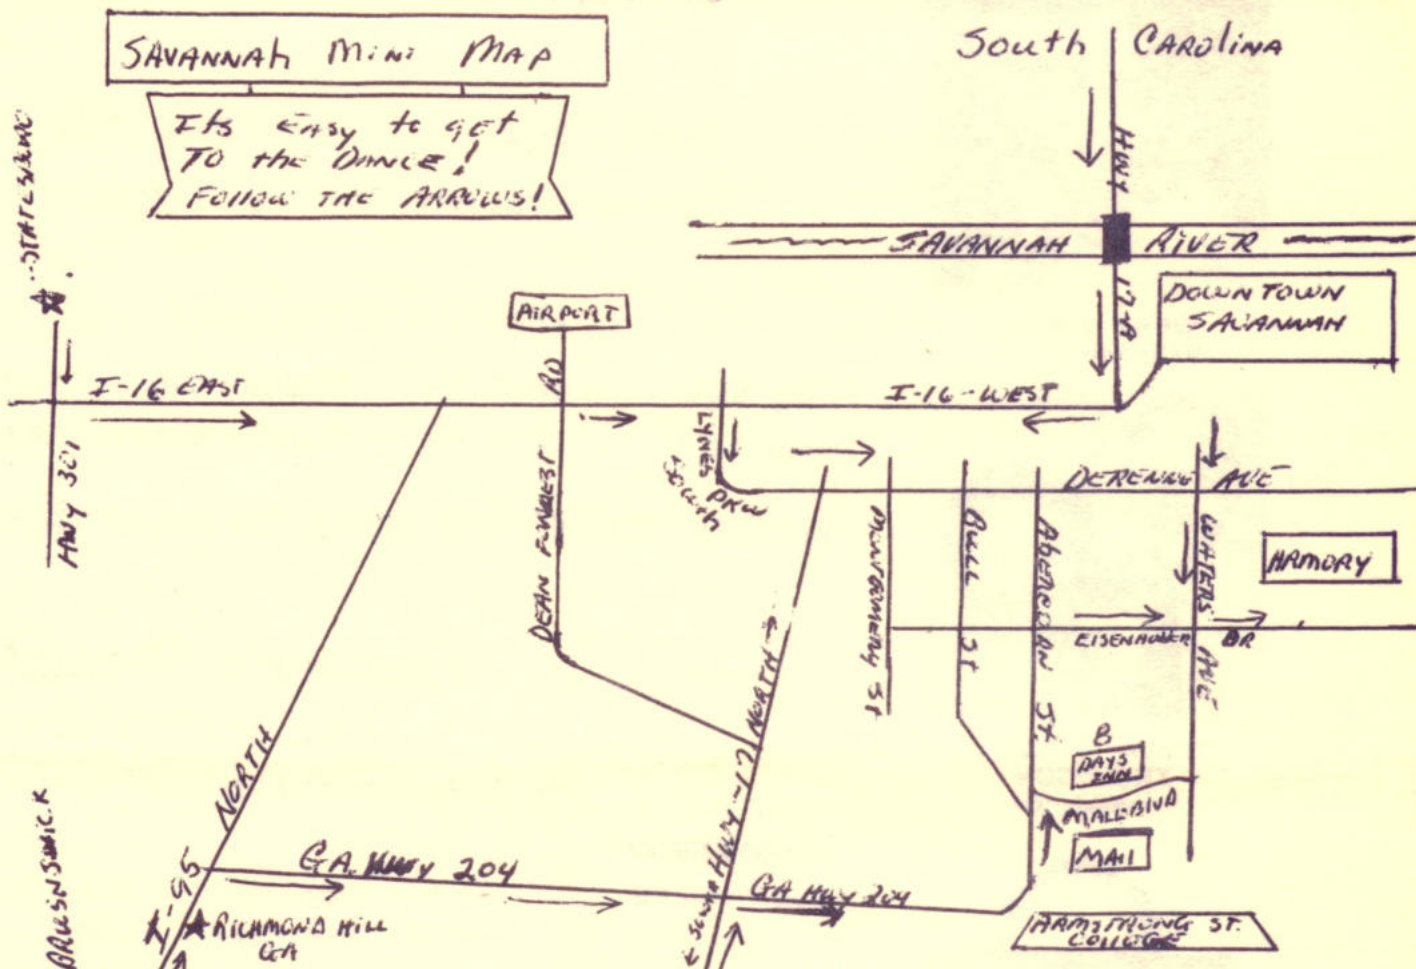 SAVANNAh MiNi MAP
Its EAsy to get
TO the DANCE!
FOLLOW THE ARROWS!
South CAROLINA
HWY 17-A
SAVANNAH RIVER
DOWNTOWN
SAVANNAH
AIRPORT
I-16 EAST
I-16-WEST
HWY 301
DEAN FORREST RD
LYNES PKW
South
DERENNE AVE
MONTGOMERY St
BULL St
AbERCORN St.
WATERS AVE
ARMORY
EISENHOWER DR
B
DAYS
INN
MALL BLVD
MALL
NORTH
I-95
GA. HWY 204
SOUTH HWY-17 NORTH
GA HWY 204
RICHMOND HILL
GA
ARMSTRONG ST.
COLLEGE